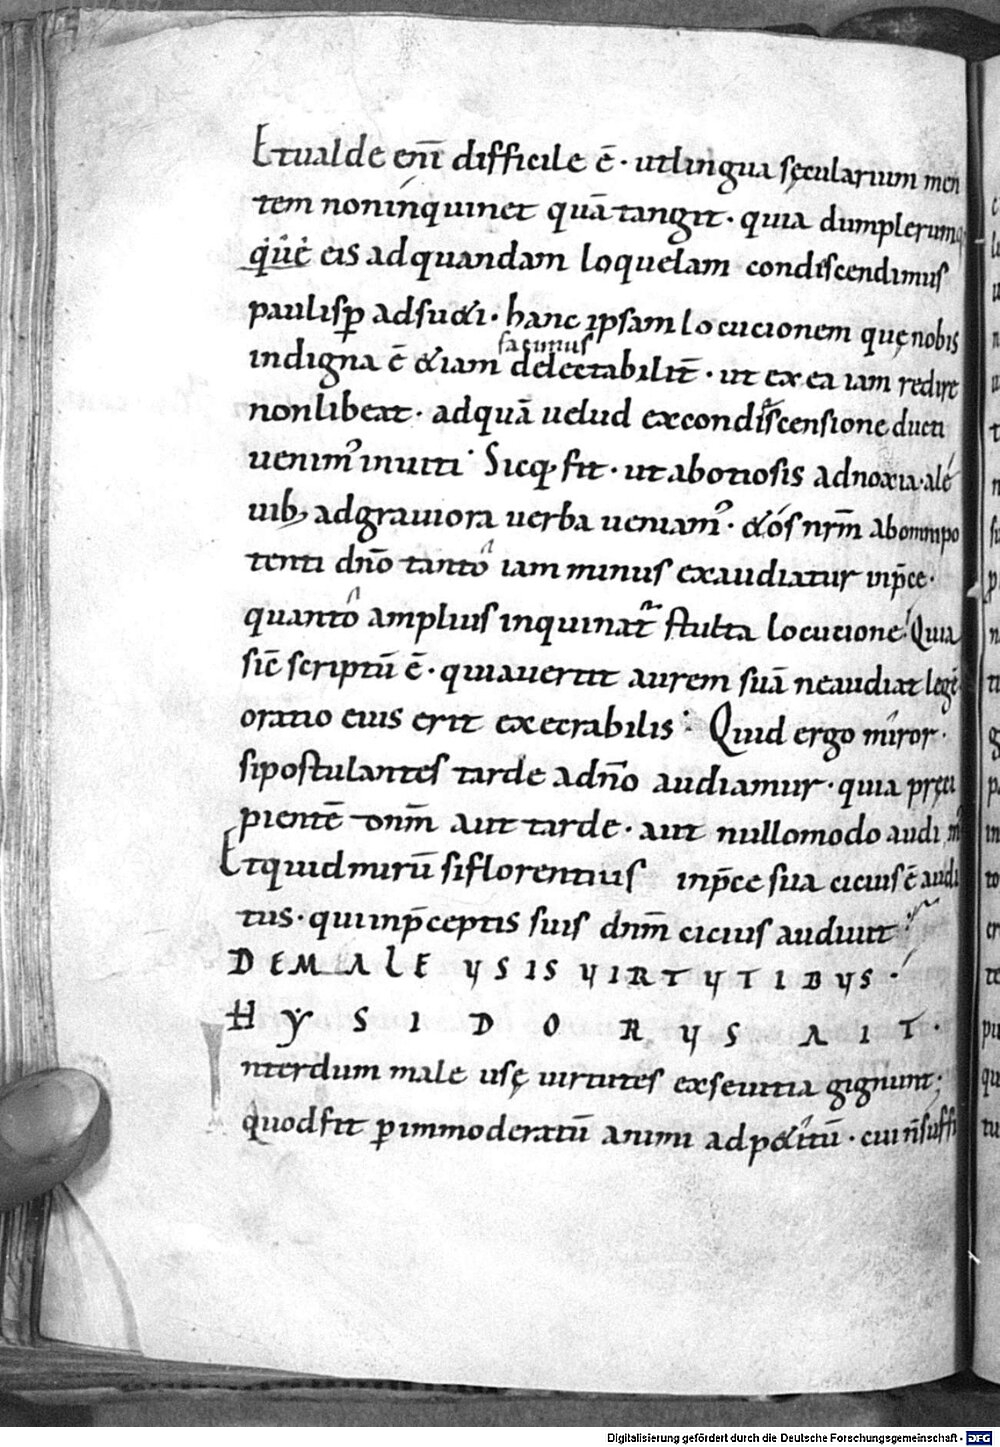 Etualde enī difficile ē· utlingua sęcularium men
tem noninquinet quā tangit· quia dumplerumq;
q̇u̇ė eis adquandam loquelam condiscendimus
paulisp̄ adsu&i· hanc ipsam locucionem quę nobis
facimus
indigna ē &iam delectabilit̄· ut ex ea iam redire
nonlibeat· adquā uelud excondiscensione ducti
uenim᾽ inuiti· Sicq· fit· ut abotiosis adnoxia· ale
uib; adgrauiora uerba ueniam᾽· & os nr̄m abomnipo
tenti dn̄o tanto iam minus exaudiatur inp̄ce·
quanto amplius inquinat᷑ stulta locucione· Quia
sic̄ scriptū ē· quiauertit aurem suā neaudiat legē
oratio eius erit execrabilis· Quid ergo miror·
sipostulantes tarde adn̄o audiamur· quia pręci
pientē dn̄m aut tarde· aut nullomodo audim᾽
Etquidmirū siflorentius inp̄ce sua cicius ē audi
tus· quiinp̄ceptis suis dn̄m cicius audiuit·
DEMALE USIS UIRTUTIBUS·
HYSIDORUS AIT·
Interdum male usę uirtutes exseuitia gignunt;
quodfit p̄ immoderatū animi adp&itū· cui n̄ suffi
Digitalisierung gefördert durch die Deutsche Forschungsgemeinschaft - DFG